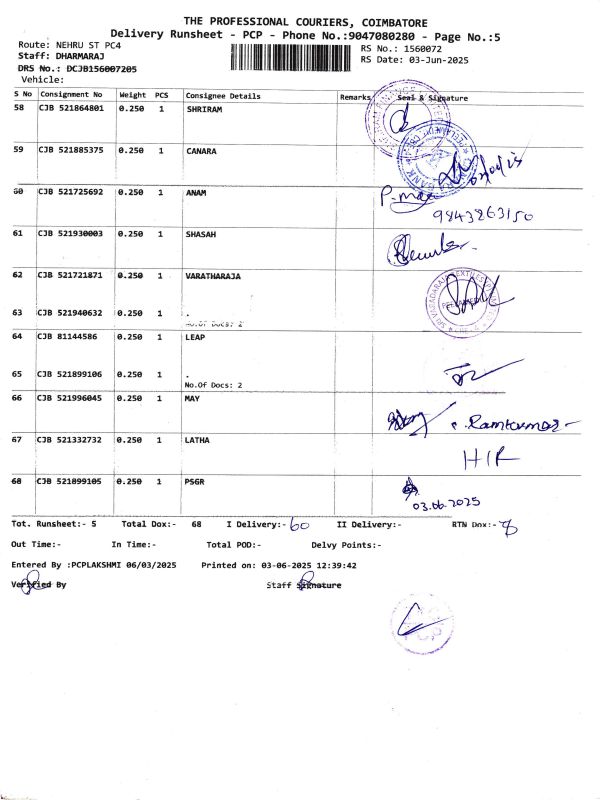 THE PROFESSIONAL COURIERS, COIMBATORE
Delivery Runsheet - PCP - Phone No.:9047080280 - Page No.:5
Route: NEHRU ST PC4
RS No.: 1560072
Staff: DHARMARAJ
RS Date: 03-Jun-2025
DRS No.: DCJB156007205
Vehicle:
S No Consignment No Weight PCS Consignee Details Remarks Seal & Signature
58 CJB 521864801 0.250 1 SHRIRAM
59 CJB 521885375 0.250 1 CANARA
60 CJB 521725692 0.250 1 ANAM
9843863150
61 CJB 521930003 0.250 1 SHASAH
62 CJB 521721871 0.250 1 VARATHARAJA
63 CJB 521940632 0.250 1 .
No.Of Docs: 2
64 CJB 81144586 0.250 1 LEAP
65 CJB 521899106 0.250 1 .
No.Of Docs: 2
66 CJB 521996045 0.250 1 MAY
Ramkumar
67 CJB 521332732 0.250 1 LATHA
68 CJB 521899105 0.250 1 PSGR
03.06.2025
Tot. Runsheet:- 5 Total Dox:- 68 I Delivery:- 60 II Delivery:- RTN Dox:- 8
Out Time:- In Time:- Total POD:- Delvy Points:-
Entered By :PCPLAKSHMI 06/03/2025 Printed on: 03-06-2025 12:39:42
Verified By Staff Signature